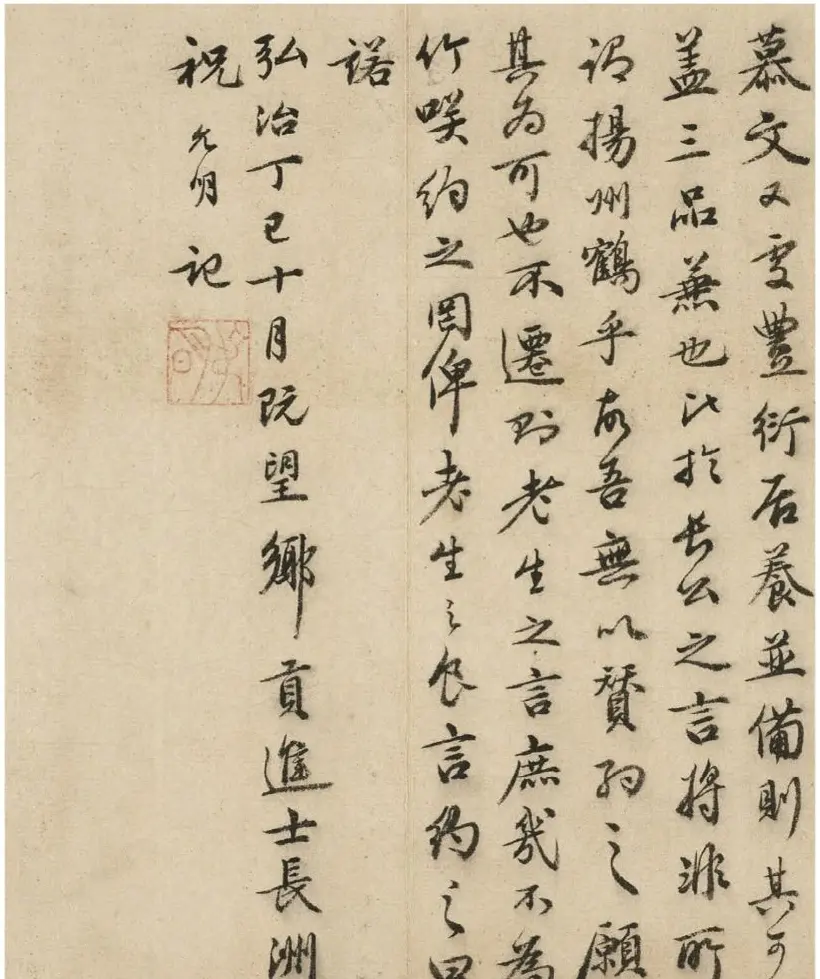 慕文又受豐衍居養並備則其可
盖三品兼也比於長公之言將非所
謂揚州鶴乎故吾無以贊約之願
其為可也不遷則老生之言庶幾不為
竹咲約之罔俾老生之食言約之曰
諾
弘治丁巳十月既望鄉貢進士長洲
祝允明記